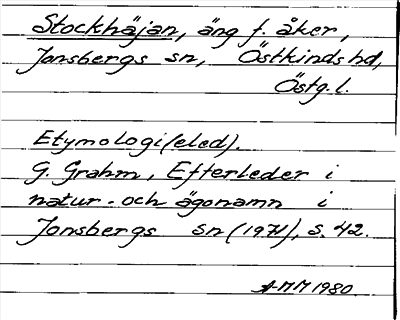 Stockhäjan, äng f. åker,
Jonsbergs sn, Östkinds hd,
Östg.l.
Etymologi (eled).
G. Grahm, Efterleder i
natur- och ägonamn i
Jonsbergs sn (1971), s. 42.
A-MM 1980.